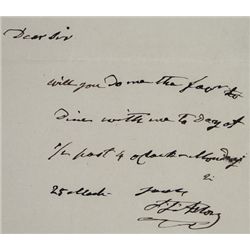 Dear Sir
will you do me the favr to
Dine with me to Day at
1/2 past 4 oclock - Monday
25 March
J J Astor